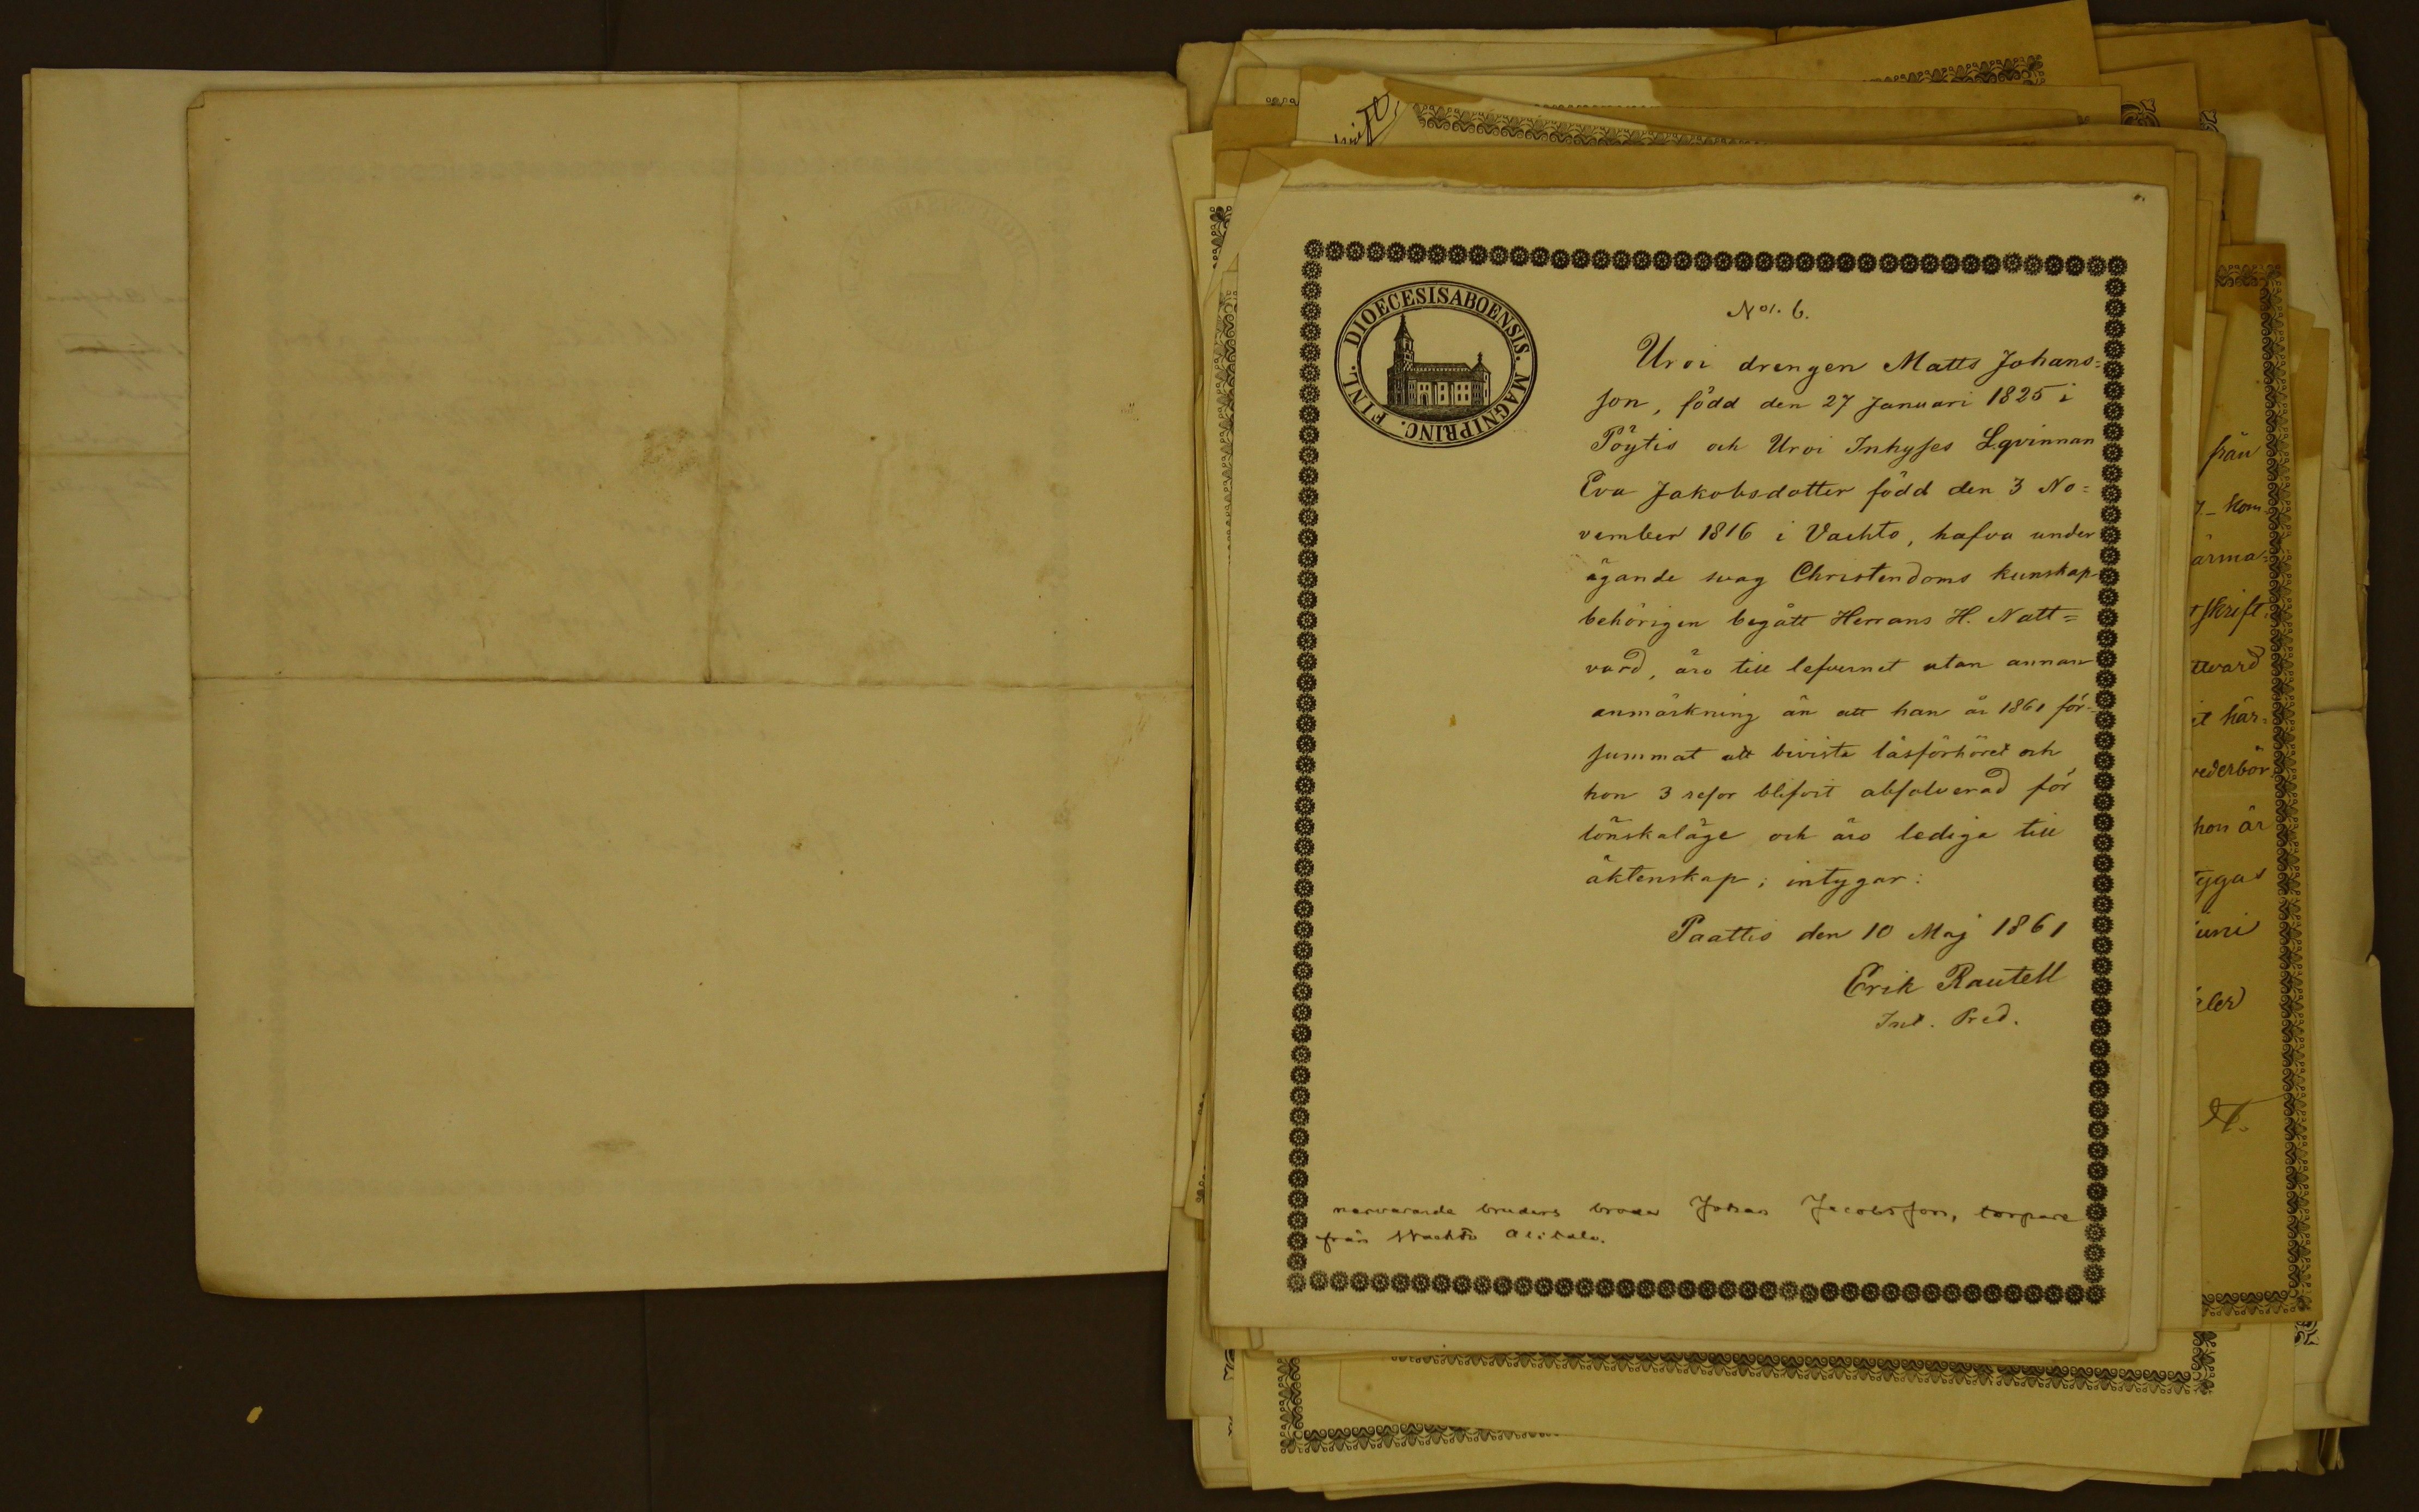 DIOECESIS ABOENSIS. MAGNI PRINC. FINL.
No/. 6.
Uroi drengen Matts Johans=
son, född den 27 Januari 1825 i
Pöytis och Uroi Inhyses Lqvinnan
Eva Jakobsdotter född den 3 No=
vember 1816 i Vachto, hafva under
ägande svag Christendoms kunskap
behörigen begått Herrans H. Natt=
vard, äro till lefvernet utan annan
anmärkning än att han år 1861 för-
summat att bivista läsförhöret och
hon 3 resor blifvit absolverad för
lönskaläge och äro lediga till
äktenskap; intygar:
Paattis den 10 Maj 1861
Erik Rautell
Pred.
närvarande brudens broder Johan Jacobsson, torpare
från Wachto Alitalo.
från
kom
ärma=
skrift
ttvard
it här=
vederbör
hon är
tygas
uni